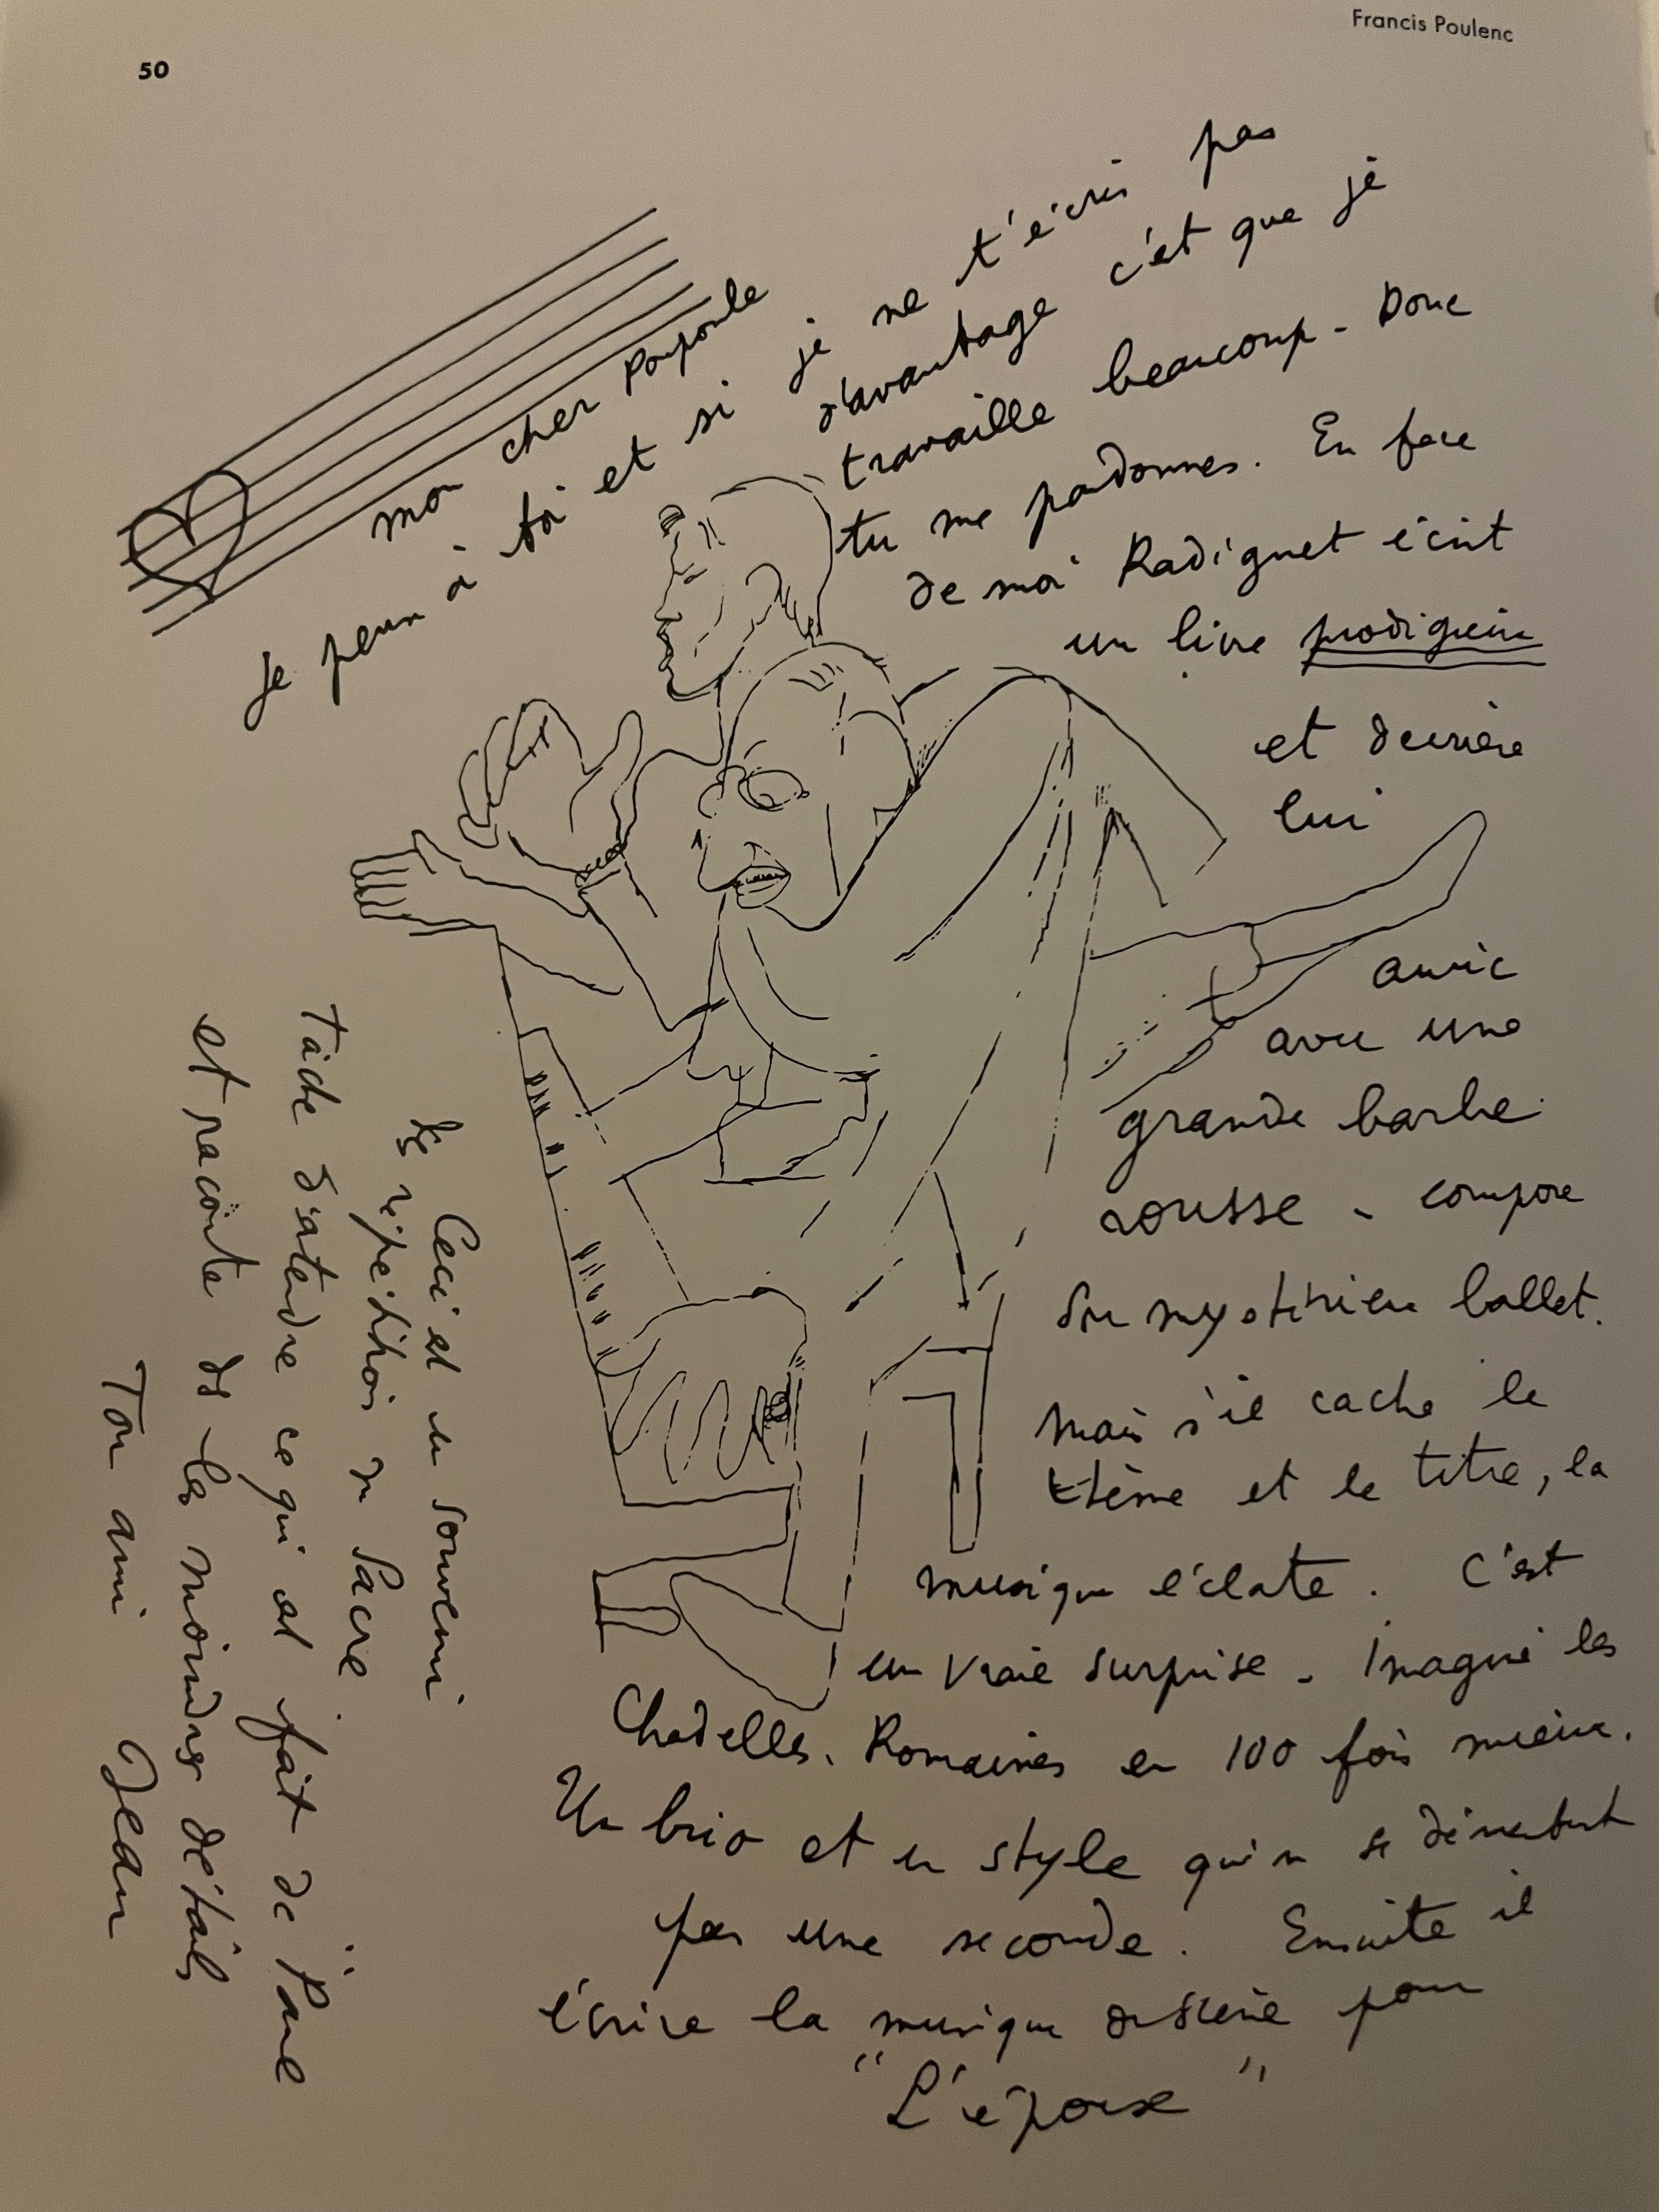 50
Francis Poulenc
mon cher Poupoule
je pense à toi et si je ne t'écris pas
d'avantage c'est que je
travaille beaucoup - Donc
tu me pardonnes. En face
de moi Radiguet écrit
un livre prodigieux
et derrière
lui
auric
avec une
grande barbe
rousse - compose
son mystérieux ballet.
mais s'il cache le
thème et le titre, la
musique éclate. C'est
une vraie surprise - Imagine les
Chadelles Romaines en 100 fois mieux.
Un brio et un style qui ne se démentent
pas une seconde. Ensuite il
écrira la musique de scène pour
"L'épouse"
Ceci est un souvenir
des répétitions du Sacre.
Tâche d'entendre ce qui est fait de Parade
et raconte moi les moindres détails
Ton ami Jean